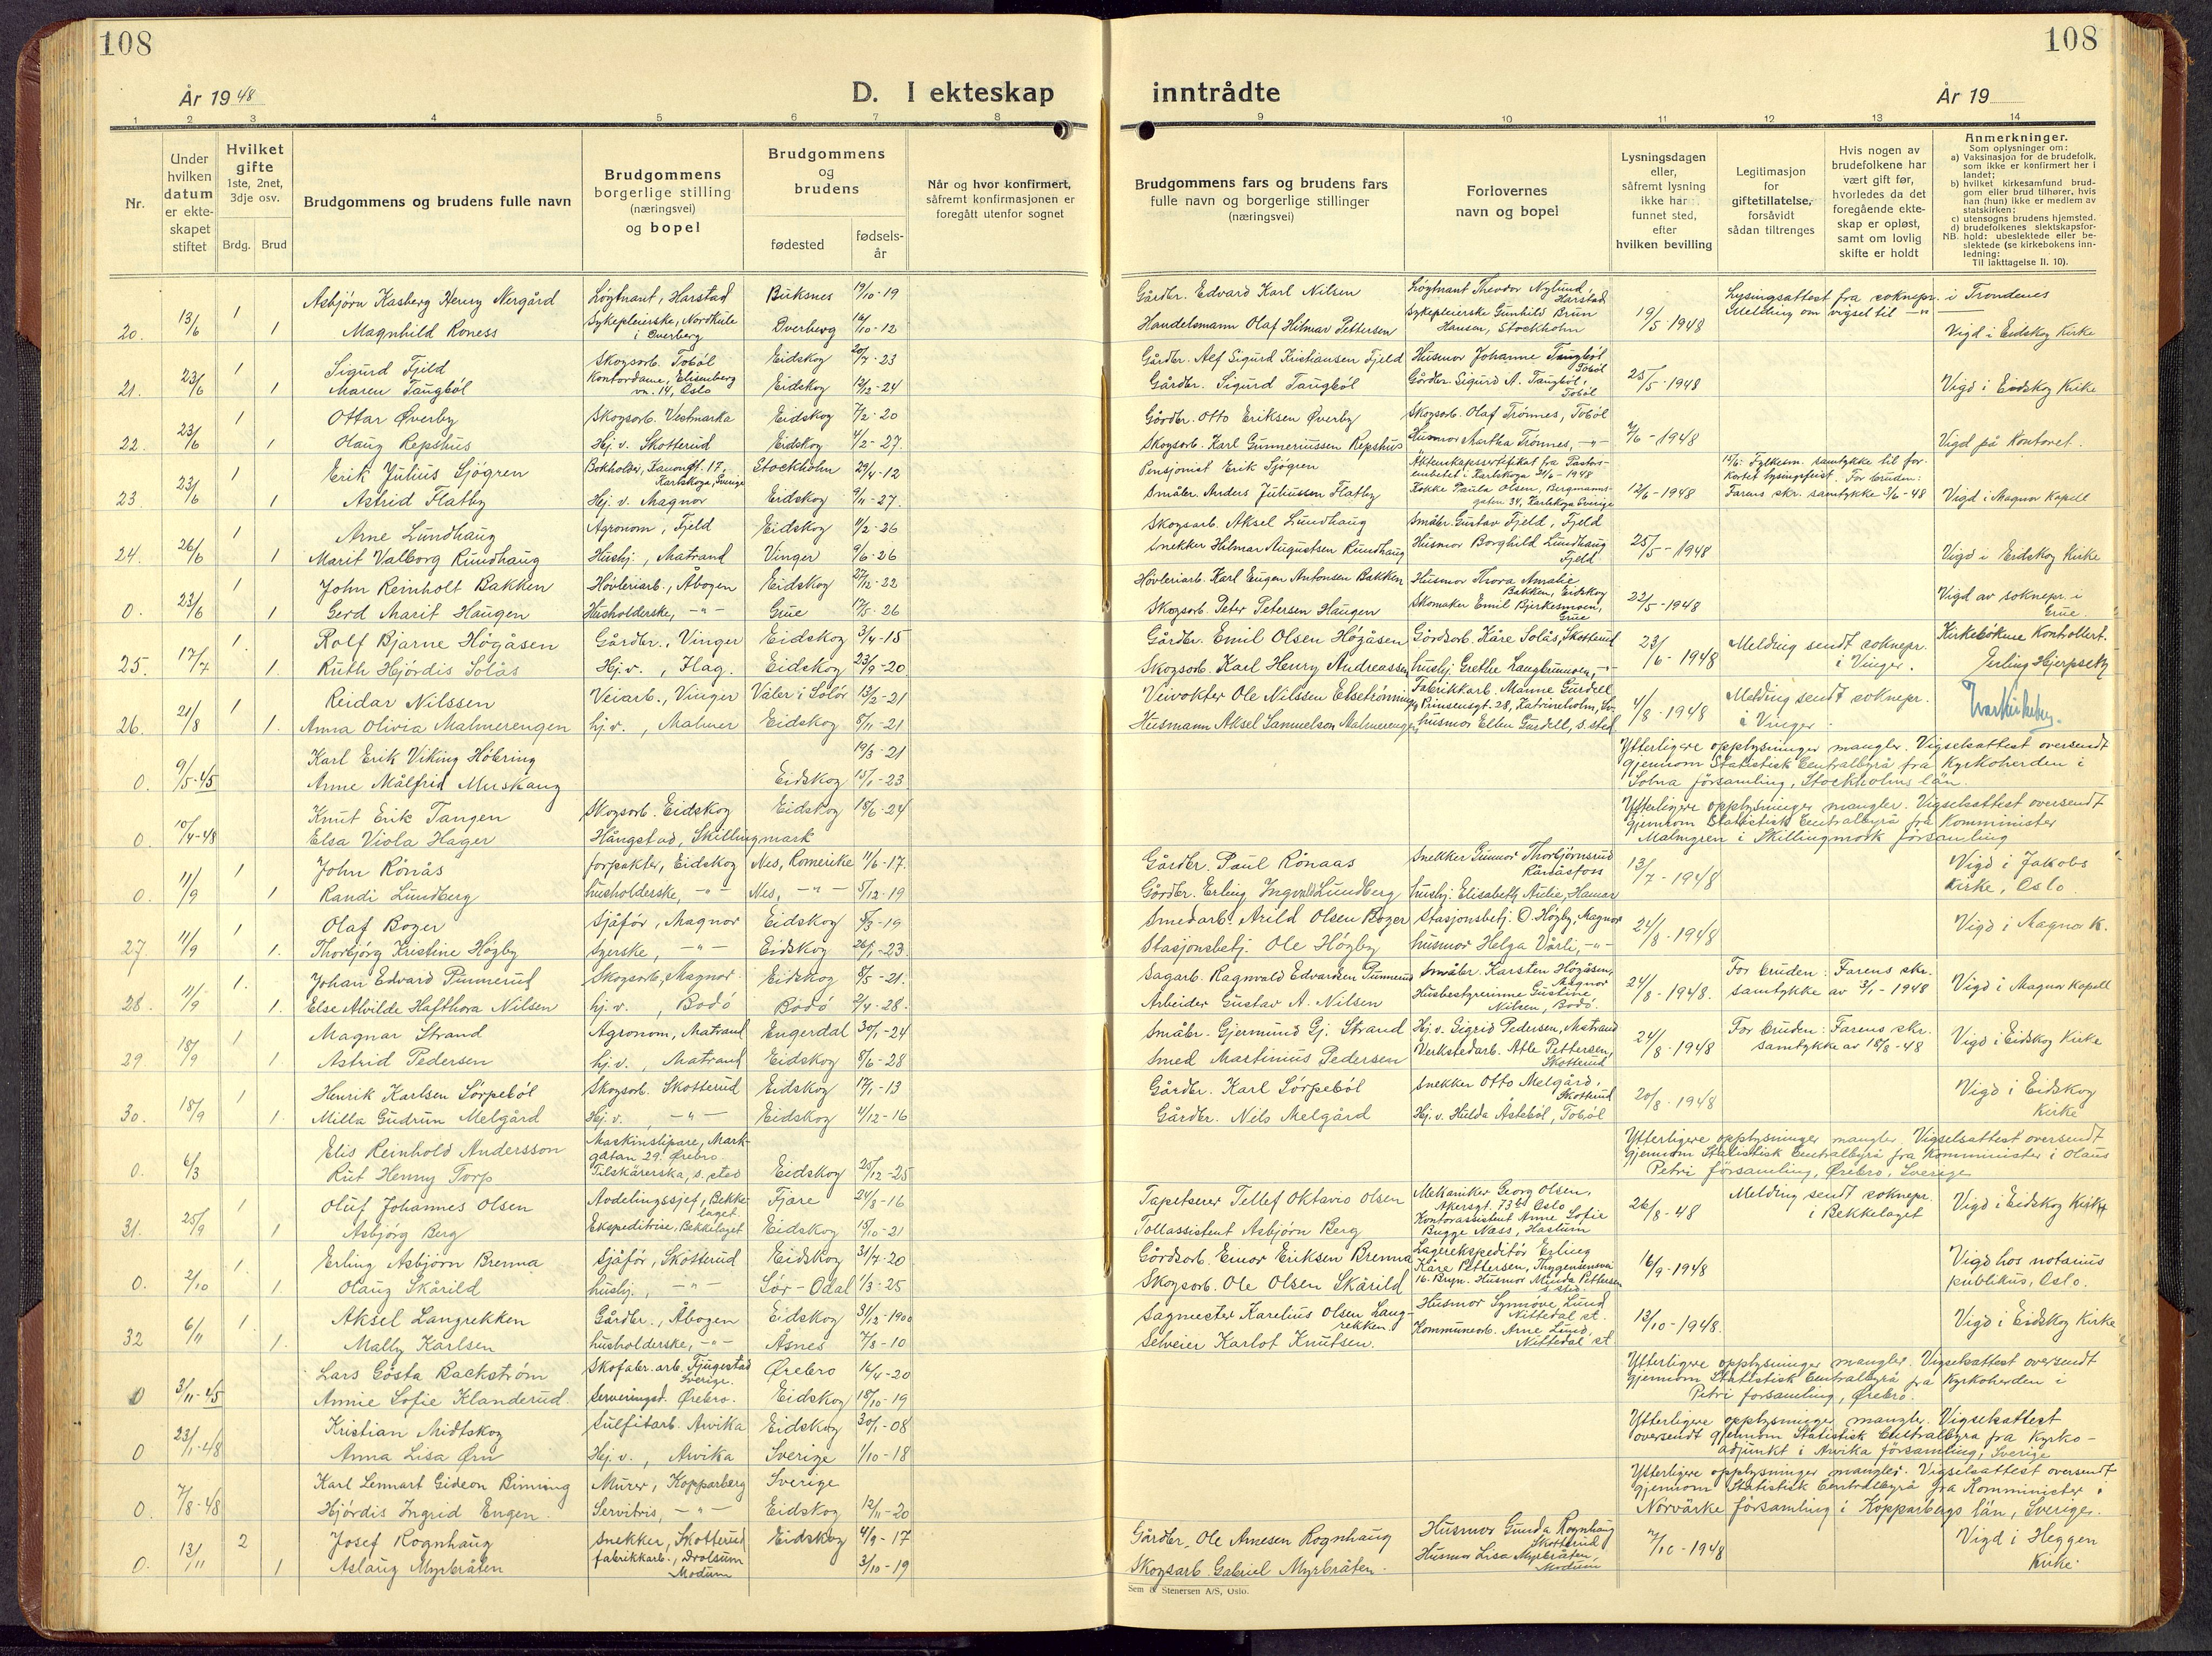 108
108
År 1948
D. I ekteskap inntrådte
År 19
1 2 3 4 5 6 7 8 9 10 11 12 13 14
Nr.
Under hvilken datum er ekteskapet stiftet
Hvilket gifte 1ste, 2net, 3dje osv.
Brdg. Brud
Brudgommens og brudens fulle navn
Brudgommens borgerlige stilling (næringsvei) og bopel
Brudgommens og brudens
fødested
fødsels-år
Når og hvor konfirmert, såfremt konfirmasjonen er foregått utenfor sognet
Brudgommens fars og brudens fars fulle navn og borgerlige stillinger (næringsvei)
Forlovernes navn og bopel
Lysningsdagen eller, såfremt lysning ikke har funnet sted, efter hvilken bevilling
Legitimasjon for giftetillatelse, forsåvidt sådan tiltrenges
Hvis nogen av brudefolkene har vært gift før, hvorledes da det foregående ekteskap er opløst, samt om lovlig skifte er holdt
Anmerkninger.
Som oplysninger om:
a) Vaksinasjon for de brudefolk, som ikke er konfirmert her i landet;
b) hvilket kirkesamfund brudgom eller brud tilhører, hvis han (hun) ikke er medlem av statskirken;
c) utensogns brudens hjemsted.
d) brudefolkenes slektskapsforhold: ubeslektede eller beslektede (se kirkebokens innledning:
NB.
Til iakttagelse II. 10).
20. 13/6 1 Asbjørn Kasberg Henry Nergård Løytnant, Harstad Buksnes 19/10-19 Gårdbr. Edvard Karl Nilsen Løytnant Theodor Nylund, Harstad 19/5-1948 Lysingsattest fra soknepr. i Trondenes
1 Magnhild Roness Sykepleierske, Nordkile i Øverberg Dverberg 16/10-12 Handelsmann Olaf Hilmar Pettersen Sykepleierske Gunhild Brun Hansen, Stockholm Melding om vigsel til -"- Vigd i Eidskog Kirke
21. 23/6 1 Sigurd Fjeld Skogsarb. Tobøl Eidskog 20/7-23 Gårdbr. Alf Sigurd Kristiansen Fjeld Husmor Johanne Taugbøl Tobøl 25/5-1948
1 Maren Taugbøl Kontordame, Elisenberg vn. 14, Oslo Eidskog 12/12-24 Gårdbr. Sigurd Taugbøl Gårdbr. Sigurd A. Taugbøl, Tobøl Vigd i Eidskog Kirke
22. 23/6 1 Ottar Øverby Skogsarb. Vestmarka Eidskog 7/2-20 Gårdbr. Otto Eriksen Øverby Skogsarb. Olaf Trønnes, Tobøl
1 Olaug Repshus Hj. v. Skotterud Eidskog 4/2-27 Skogsarb. Karl Gunneriussen Repshus Husmor Martha Trønnes, -"- /6-1948 Vigd på Kontoret.
23 23/6 1 Erik Julius Sjøgren Bokholder, Kanongt. 17, Karlskoga, Sverige Stockholm 29/4-12 Pensjonist Erik Sjøgren Äktenskapssertifikat fra Pastorsembetet i Karlskoga 21/6-1948 15/6: Fylkesm. samtykke til forkortet lysingsfrist. For bruden:
1 Astrid Flatby Hj. v. Magnor Eidskog 9/11-27. Småbr. Anders Juliussen Flatby Kokke Paula Olsen, Bergmannsgaten 34, Karlskoga Sverige 12/6-1948 Farens skr. samtykke 3/6-48 Vigd i Magnor Kapell
24. 26/6 1 Arne Lundhaug Agronom, Fjeld Eidskog 4/2-26 Skogsarb. Aksel Lundhaug Småbr. Gustav Fjeld, Fjeld
1 Marit Valborg Rundhaug Hushj., Matrand Vinger 9/6-26 Snekker Hilmar Augustsen Rundhaug Husmor Borghild Lundhaug Fjeld 25/5-1948 Vigd i Eidskog Kirke
0. 23/6 1 John Reinholt Bakken Høvleriarb., Åbogen Eidskog 27/12-22 Høvleriarb. Karl Eugen Antonsen Bakken Husmor Thora Amalie Bakken, Eidskog
1 Gerd Marit Haugen Husholderske, -"- Grue 17/5-26 Skogsarb. Peter Petersen Haugen Skomaker Emil Bjirkesmoen, Grue 22/5-1948 Vigd av soknepr. i Grue.
25. 17/7 1. Rolf Bjarne Høgåsen Gårdbr., Vinger Eidskog 3/4-15 Gårdbr. Emil Olsen Høgåsen Gårdsarb. Kåre Solås, Skotterud 23/6-1948 Melding sendt soknepr. i Vinger. Kirkebøkene Kontrollert.
1. Ruth Hjørdis Solås Hj.v., Flag. Eidskog 23/9-20. Skogsarb. Karl Henry Andreassen hushj. Grethe Langbrunmoen, -"- Erling Hjerpseth
26. 21/8 1 Reidar Nilssen Veiarb., Vinger Våler i Solør 13/2-21 Veivokter Ole Nilssen Elsetrønning Fabrikkarb. Manne Gurdell, Prinsensgt. 28, Katrineholm, Sv. 4/8-1948 Melding sendt soknepr. i Vinger.
1. Anna Olivia Malmerengen hj.v., Malmer Eidskog 8/11-21 Husmann Aksel Samuelson Malmerengen husmor Ellen Gurdell, s. sted
0. 9/5-45 Karl Erik Viking Høbring 19/3-21 Ytterligere opplysninger mangler. Vigselsattest oversendt
Anne Målfrid Muskaug Eidskog 15/1-23 gjennom Statistisk Centralbyrå fra Kyrkoherden i
Solna församling, Stockholms län.
0. 10/4-48 Knut Erik Tangen Skogsarb. Eidskog Eidskog 18/6-24 Ytterligere opplysninger mangler. Vigselsattest oversendt
Elsa Viola Hager Hångstad, Skillingmark gjennom Statistisk Centralbyrå fra Komminister
Malmgren i Skillingmark församling
0. 11/9 1 John Rønås forpakter, Eidskog Nes, Romerike 11/6-17. Gårdbr. Paul Rønaas Snekker Gunnar Thorbjørnsrud Rånåsfoss 13/7-1948 Vigd i Jakobs
1 Randi Lundberg husholderske, -"- Nes, -"- 5/12-19 Gårdbr. Erling Ingvald Lundberg hushj. Elisabeth Aulie, Hamar Kirke, Oslo.
27. 11/9 1 Olaf Boger Sjåfør, Magnor Eidskog 8/3-19 Smedarb. Arild Olsen Boger Stasjonsbetj. O. Høgby, Magnor 24/8-1948 Vigd i Magnor K.
1. Thorbjørg Kristine Høgby Syerske, -"- Eidskog 26/1-23 Stasjonsbetj. Ole Høgby husmor Helga Vårli, -"-
28. 11/9 1. Johan Edvard Pünnerud Skogsarb., Magnor Eidskog 8/5-21. Sagarb. Ragnvald Edvardsen Pünnerud Småbr. Karsten Høgåsen, Magnor 24/8-1948. For bruden: Farens skr.
1. Else Alvilde Hafthora Nilsen hj.v., Bodø Bodø 2/4-28. Arbeider Gustav A. Nilsen Husbestyrerinne Gustine Nilsen, Bodø. samtykke av 3/1-1948 Vigd i Magnor Kapell
29 18/9 1 Magnar Strand Agronom, Matrand Engerdal 30/1-24 Småbr. Gjermund Gj. Strand Hj.v. Sigrid Pedersen, Matrand 24/8-1948 For bruden: Farens skr.
1. Astrid Pedersen hj.v., Matrand Eidskog 8/6-28 Smed Martinius Pedersen Verkstedarb. Atle Pettersen, Skotterud samtykke av 18/8-48 Vigd i Eidskog Kirke
30. 18/9 1 Henrik Karlsen Sørpebøl Skogsarb. Skotterud Eidskog 17/1-13 Gårdbr. Karl Sørpebøl Snekker Otto Melgård, Skotterud 20/8-1948 Vigd i Eidskog
1. Milla Gudrun Melgård Hj.v., -"- Eidskog 4/12-16 Gårdbr. Nils Melgård Hj.v. Hulda Åslebøl, Tobøl Kirke
0. 6/3 Elis Reinhold Andersson Maskinslipare, Markgatan 29. Ørebro Ytterligere opplysninger mangler. Vigselsattest oversendt
Rut Henny Torp Tilskärerska, s. sted Eidskog 25/12-25 gjennom Statistisk Centralbyrå fra Komminister i Olaus
Petri församling, Ørebro, Sverige
31. 25/9 1 Oluf Johannes Olsen Avdelingssjef, Bekkelaget Fjære 24/8-16 Tapetserer Tellef Oktavio Olsen Mekaniker Georg Olsen, Akersgt. 73 bl Oslo 26/8-48 Melding sendt soknepr. i Bekkelaget Vigd i Eidskog Kirke
1 Asbjørg Berg Ekspeditrise, Bekkelaget Eidskog 15/10-21 Tollassistent Asbjørn Berg Kontorassistent Anne Sofie Bugge Næss, Haslum
0. 2/10 1. Erling Asbjørn Brenna Sjåfør, Skotterud Eidskog 31/7-20 Gårdsarb. Einar Eriksen Brenna Lagerekspeditør Erling Kåre Pettersen, 16/9-1948 Vigd hos notarius
1. Olaug Skårild hushj., -"- Sør-Odal 1/3-25 Skogsarb. Ole Olsen Skårild 16. Bryn. Husmor Minda Pettersen s. sted. publikus, Oslo.
32 6/11 1. Aksel Langrekken Gårdbr., Åbogen Eidskog 31/12-1900 Sagmester Karelius Olsen Langrekken Husmor Synnøve Lund Nittedal st. 13/10-1948. Vigd i Eidskog Kirke
1. Mally Karlsen husholderske, -"- Åsnes 7/8-10 Selveier Karlot Knutsen. Kommunearb. Arne Lund, Nittedal st
0 3/11-45 Lars Gösta Backstrøm Skofabr. arb. Fjugestad Sverige. Ørebro 16/4-20 Ytterligere opplysninger mangler. Vigselsattest oversendt
Annie Sofie Klanderud. Serveringsd. Ørebro. Eidskog 18/10-19 gjennom Statistisk Centralbyrå fra Kyrkoherden i
Petri forsamling, Ørebro.
0 23/1-48 Kristian Midtskog Sulfitarb. Arvika Eidskog 30/1-08 Ytterligere opplysninger mangler. Vigselsattest
Anna Lisa Ørn Hj.v., Arvika Sverige 1/10-18 oversendt gjennom Statistisk Centralbyrå fra Kyrko-
adjunkt i Arvika församling, Sverige
0. 7/8-48 Karl Lennart Gideon Binning Murer, Kopparberg Sverige Ytterligere opplysninger mangler. Vigselsattest oversendt
Hjørdis Ingrid Engen. Servitris, -"- Eidskog 12/11-20 gjennom Statistisk Centralbyrå fra Komminister i
Norvärke församling i Kopparbergs län, Sverige.
0. 13/11 2 Josef Rognhaug Snekker, Skotterud Eidskog 4/9-17 Gårdbr. Ole Arnesen Rognhaug Husmor Gunda Rognhaug Skotterud 7/10-1948 Vigd i Heggen
1 Aslaug Myrbråten fabrikkarb., Drolsum Modum 3/10-19 Skogsarb. Gabriel Myrbråten. Husmor Lisa Myrbråten, Modum Kirke.
Sem & Stenersen A/S, Oslo.